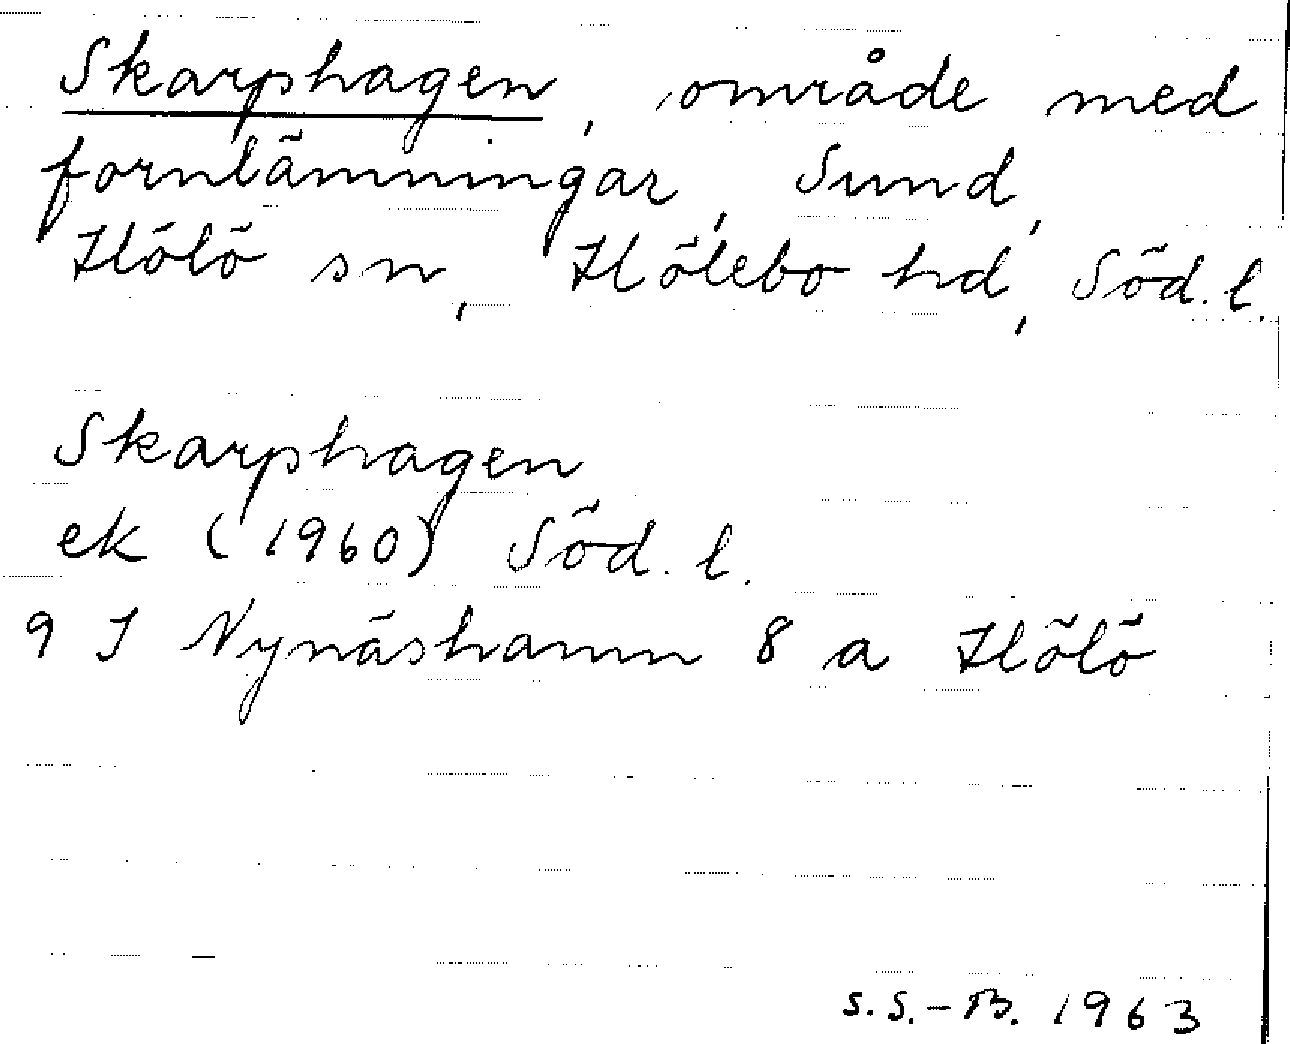 Skarphagen, område med
fornlämningar, Sund,
Hölö sn, Hölebo hd, Söd. l.
Skarphagen
ek (1960) Söd. l.
9 I Nynäshamn 8 a Hölö
S.S.-B. 1963